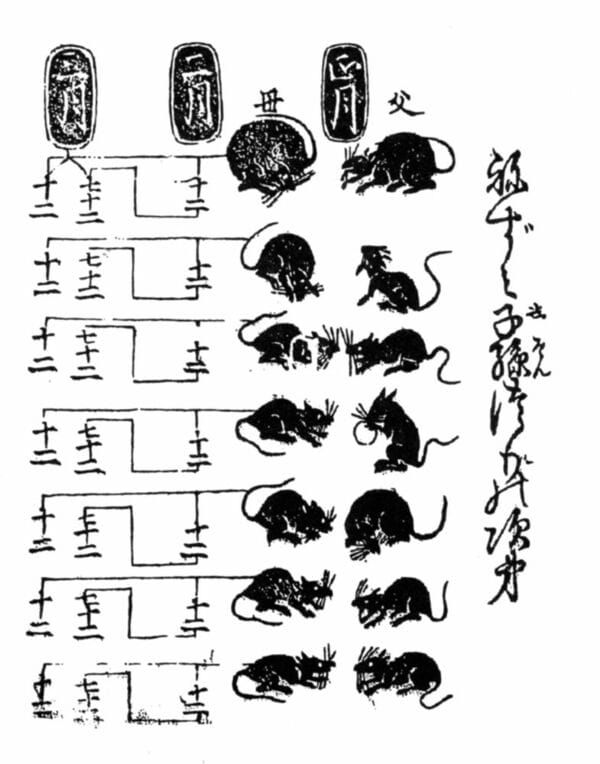 ねずミ子孫 次第
正月
父
母
二月
十二
七十二
十二
十二
七十二
十二
十二
七十二
十二
十二
七十二
十二
十二
七十二
十二
十二
七十二
十二
十二
七十二
十二